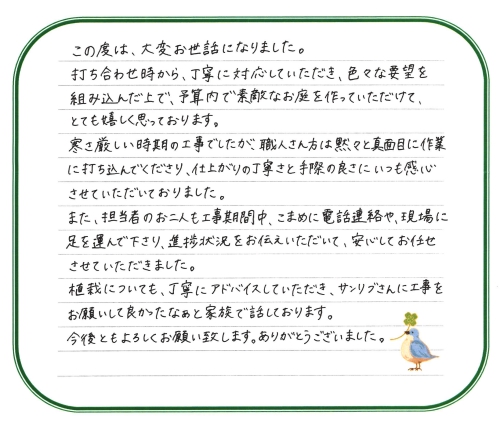 この度は、大変お世話になりました。
打ち合わせ時から、丁寧に対応していただき、色々な要望を
組み込んだ上で、予算内で素敵なお庭を作っていただけて、
とても嬉しく思っております。
寒さ厳しい時期の工事でしたが、職人さん方は黙々と真面目に作業
に打ち込んでくださり、仕上がりの丁寧さと手際の良さにいつも感心
させていただいておりました。
また、担当者のお二人も工事期間中、こまめに電話連絡や、現場に
足を運んで下さり、進捗状況をお伝えいただいて、安心してお任せ
させていただきました。
植栽についても、丁寧にアドバイスしていただき、サンリブさんに工事を
お願いして良かったなぁと家族で話しております。
今後ともよろしくお願い致します。ありがとうございました。